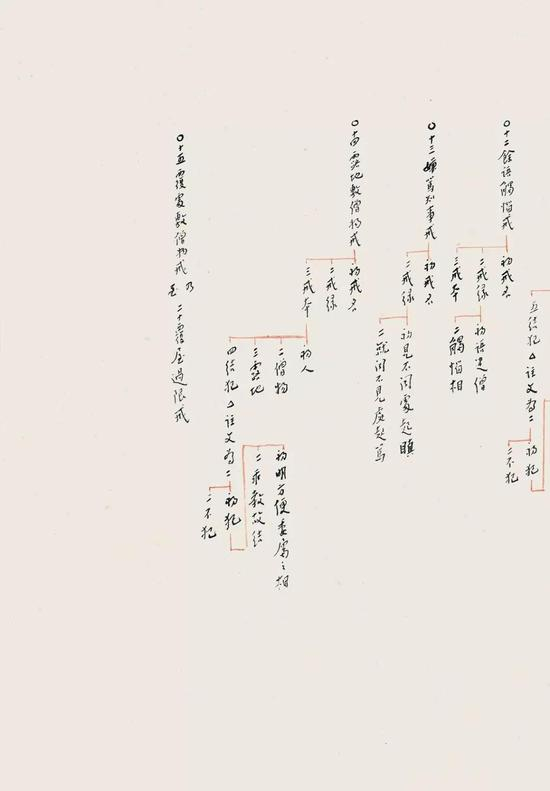 五結犯△註文為二
初犯
二不犯
〇十二餘語觸惱戒
初戒名
二戒緣
三戒本
初語違僧
二觸惱相
〇十三嫌罵知事戒
初戒名
二戒緣
初見不聞處起瞋
二就聞不見處起罵
〇十四露地敷僧物戒
初戒名
二戒緣
三戒本
初人
二僧物
三露地
四結犯△註文為二
初犯
二不犯
初明方便委囑之相
二乖教故結
〇十五覆處敷僧物戒乃至二十覆屋過限戒